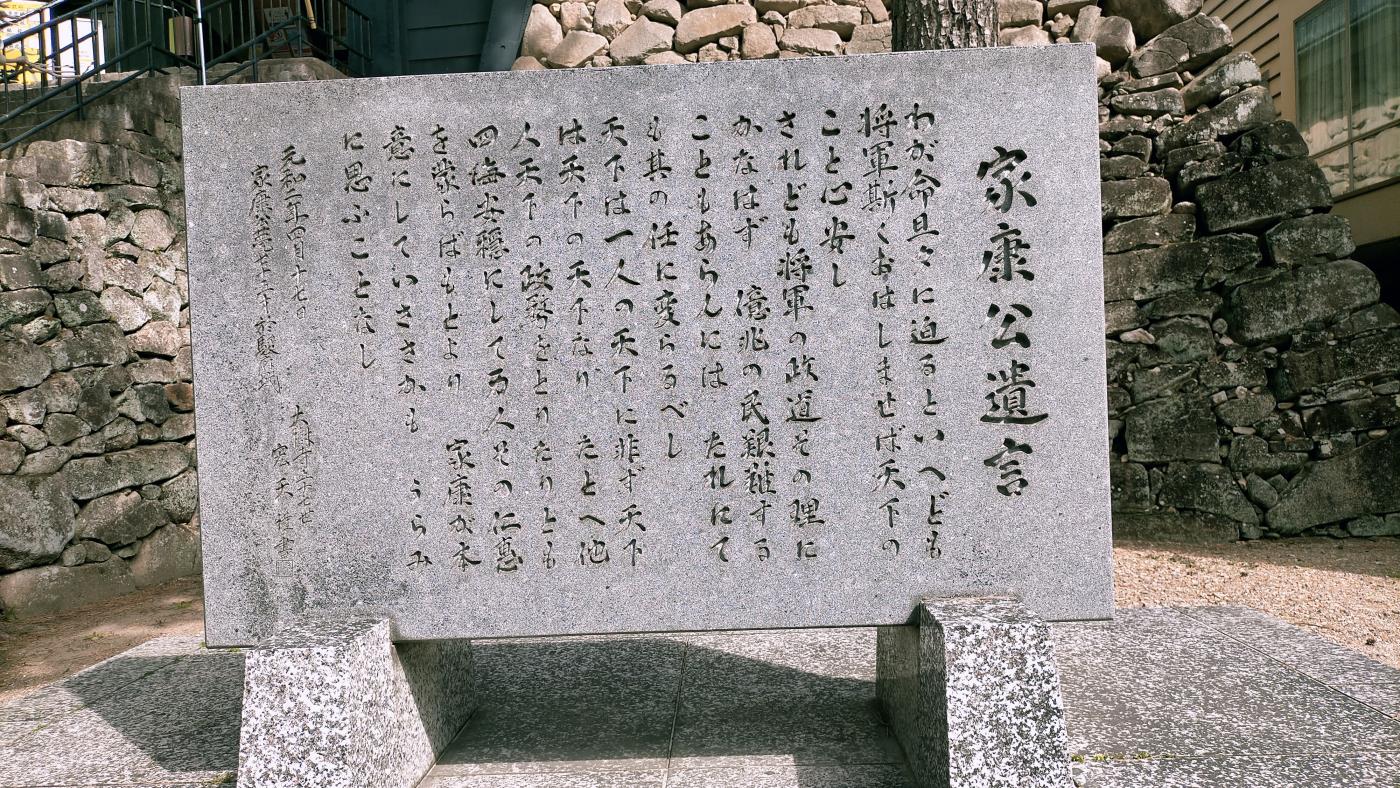 家康公遺言
わが命旦夕に迫るといへども
将軍斯くおはしませば天下の
こと心安し
されども将軍の政道その理に
かなはず 億兆の民艱難する
こともあらんには たれにて
も其の任に変らるべし
天下は一人の天下に非ず天下
は天下の天下なり たとへ他
人天下の政務をとりたりとも
四海安穏にして万人その仁恵
を蒙らばもとより 家康が本
意にしていささかも うらみ
に思ふことなし
元和二年四月十七日
家康公薨七十六於駿府
大樹寺五十七世